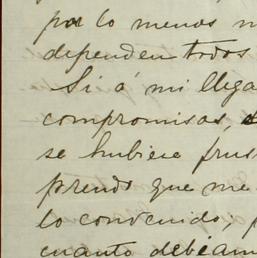 por lo menos
dependen todos
Si á mi llega
compromisos,
se hubiere frus
prendo que me
lo convenido;
cuanto debéiam